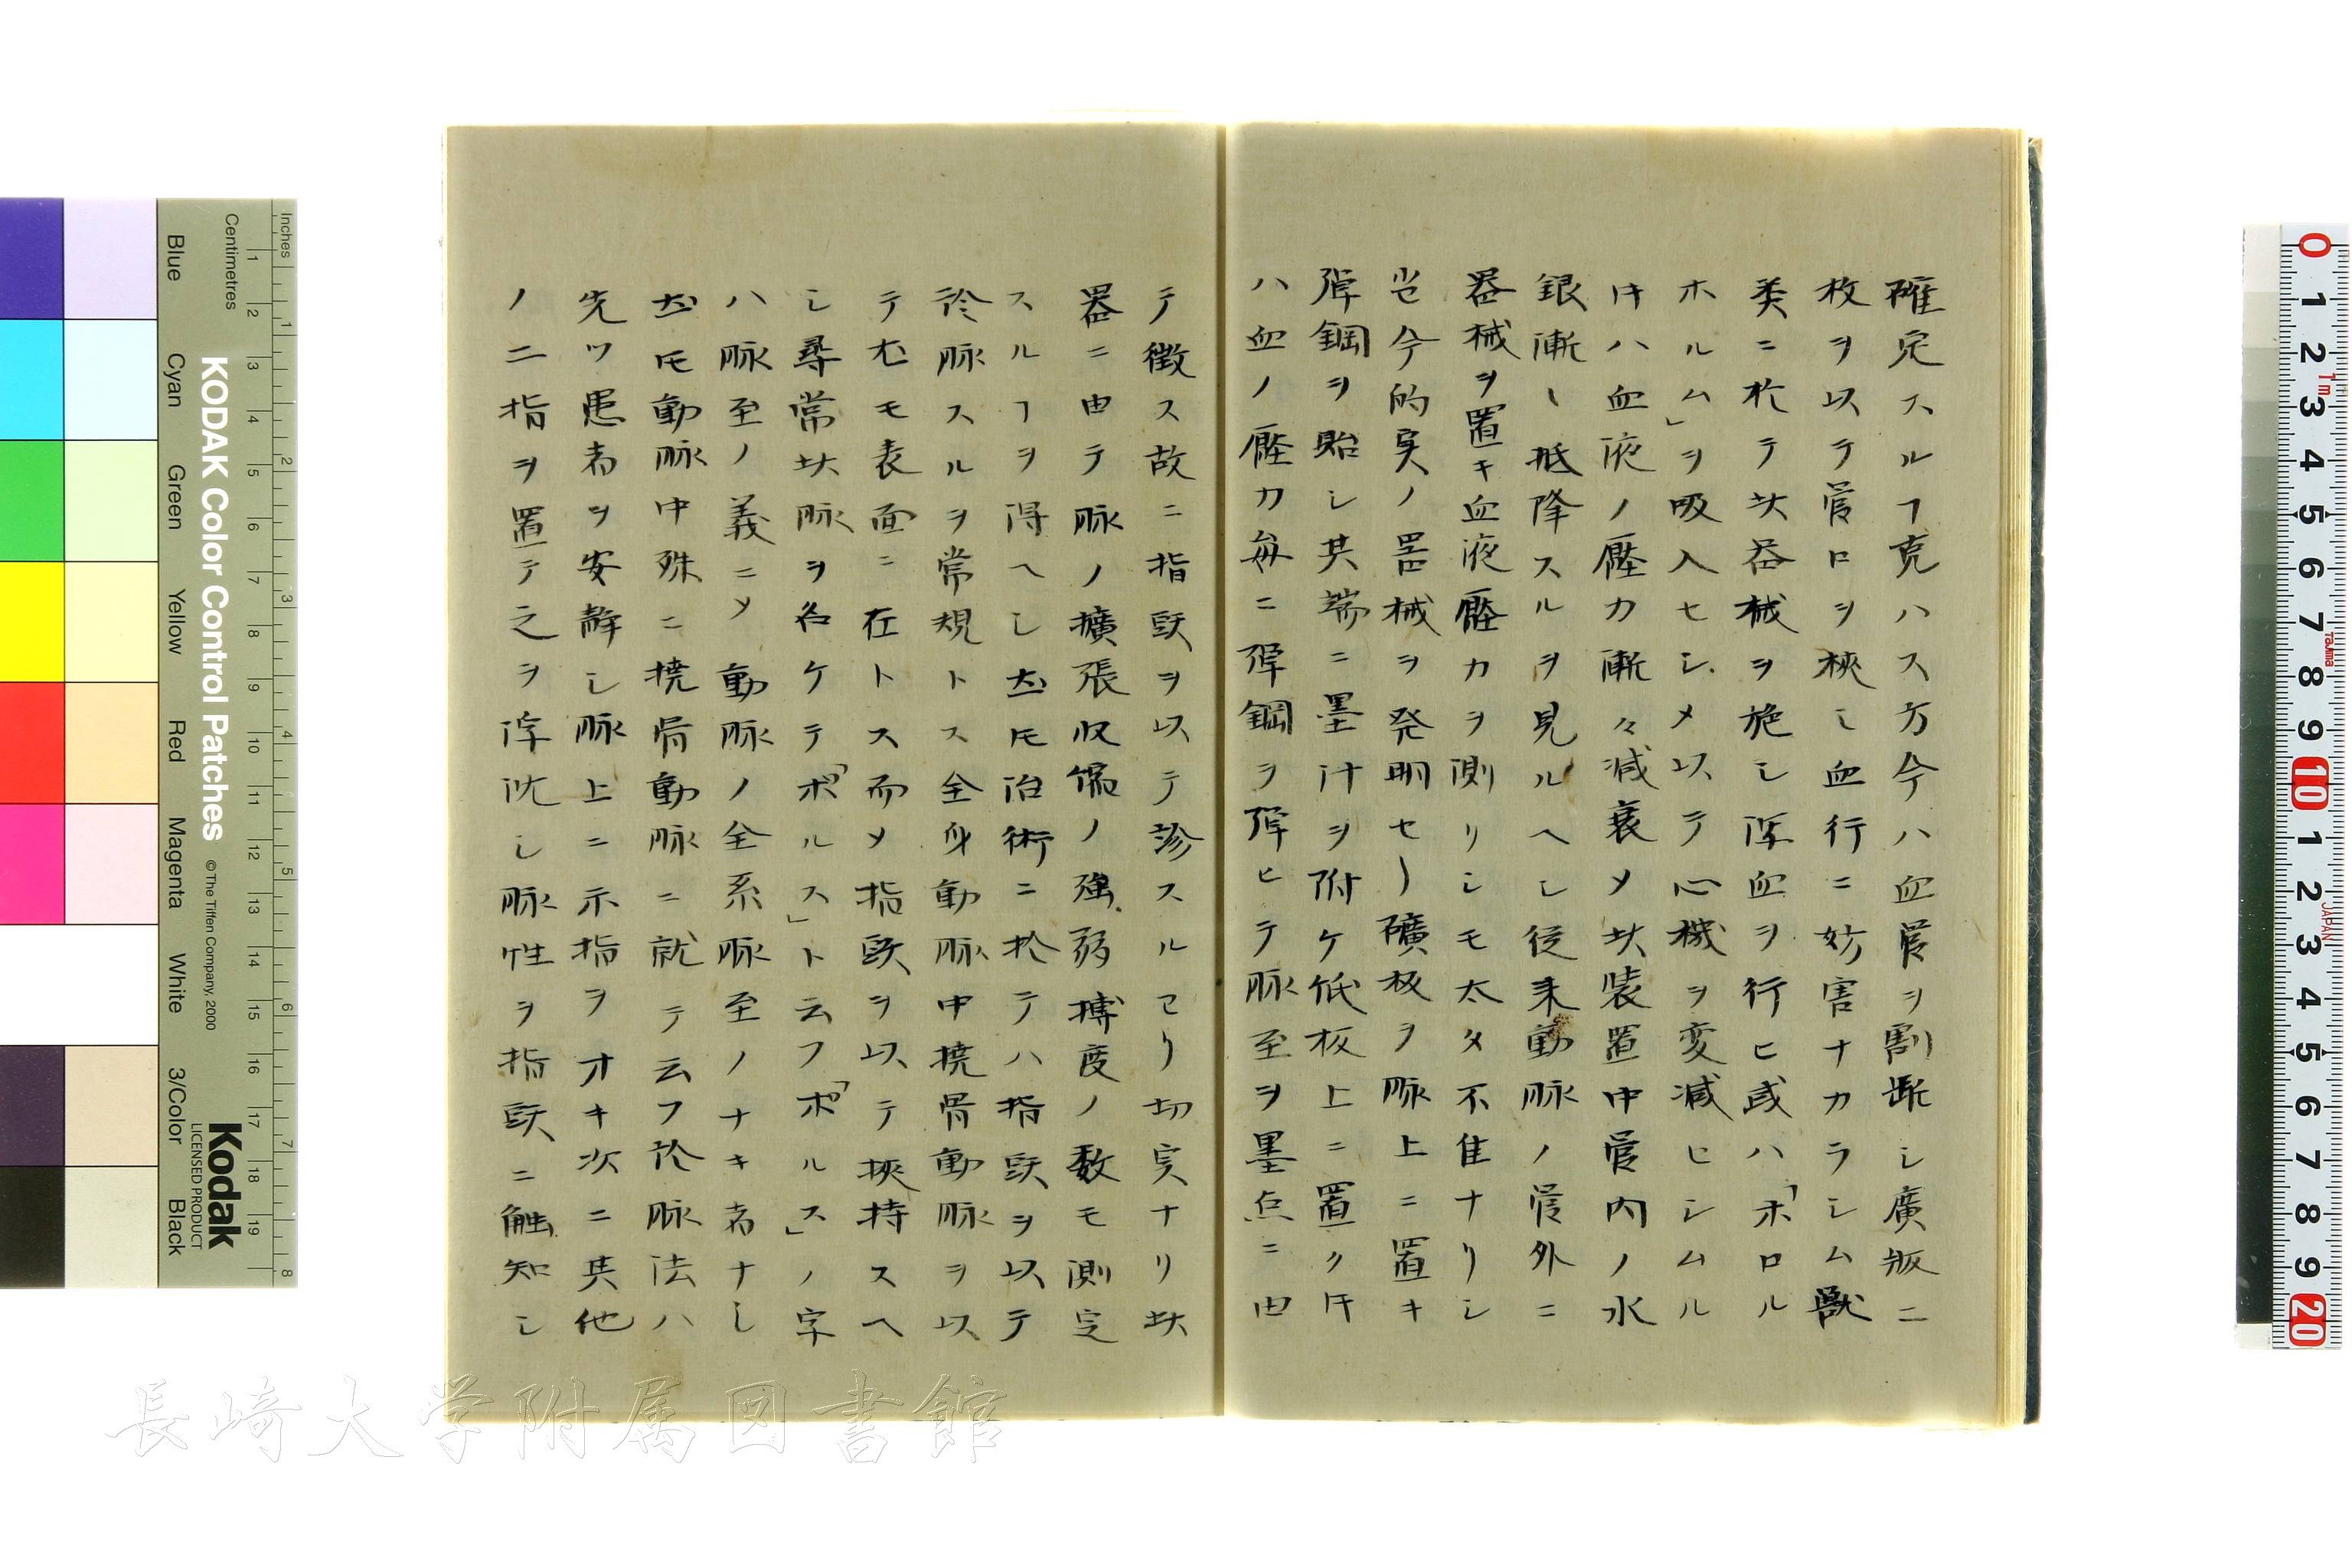 確定スルヿ克ハス方今ハ血管ヲ割断シ廣版ニ
枚ヲ以テ管口ヲ挾シ血行ニ妨害ナカラシム獸
美ニ於テ此器械ヲ施シ浮血ヲ行ヒ或ハ「ホロル
ホルム」ヲ吸入セシメ以テ心機ヲ変減ヒシムル
件ハ血液ノ壓力漸々減衰メ此装置中管内ノ水
銀漸々抵降スルヲ見ルヘシ従来動脉ノ管外ニ
器械ヲ置キ血液壓力ヲ測リシモ太タ不隹ナリシ
今的実ノ器械ヲ発明セリ礦板ヲ脉上ニ置キ
弾鋼ヲ貽シ其端ニ墨汁ヲ附ケ低板上ニ置クキ
ハ血ノ壓力毎ニ弾鋼ヲ弾ヒテ脉至ヲ墨点ニ由
テ徴ス故ニ指頭ヲ以テ診スルヨリ切実ナリ此
器ニ由テ脉ノ擴張収縮ノ強弱搏度ノ数モ測定
スルヿヲ得ヘシ尤モ治術ニ於テハ指頭ヲ以テ
診脉スルヲ常規トス全身動脉中撓骨動脉ヲ以
テ尤モ表面ニ在トス而メ指頭ヲ以テ挾持スヘ
シ尋常此脉ヲ名ケテ「ポルス」ト云フ「ポルス」ノ字
ハ脉至ノ義ニメ動脉ノ全系脉至ノナキ者ナシ
尤モ動脉中殊ニ撓骨動脉ニ就テ云フ診脉法ハ
先ツ患者ヲ安静シ脉上ニ示指ヲオキ次ニ其他
ノ二指ヲ置テ之ヲ浮沈シ脉性ヲ指頭ニ触知シ
長崎大学附属図書館
Inches
Centimetres
KODAK Color Control Patches
© The Tiffen Company, 2000
Kodak
LICENSED PRODUCT
Blue
Cyan
Green
Yellow
Red
Magenta
White
3/Color
Black
1 2 3 4 5 6 7 8
1 2 3 4 5 6 7 8 9 10 11 12 13 14 15 16 17 18 19
0 1 2 3 4 5 6 7 8 9 10 1 2 3 4 5 6 7 8 9 20
1m
Tajima
JAPAN